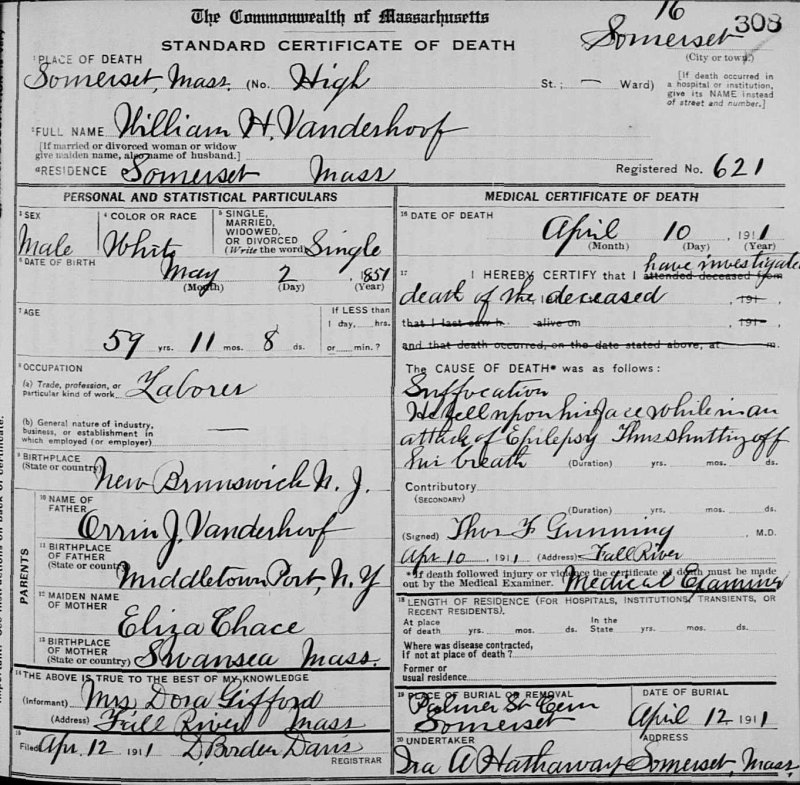 The Commonwealth of Massachusetts
16 308
STANDARD CERTIFICATE OF DEATH
Somerset
(City or town.)
1 PLACE OF DEATH
Somerset, Mass. (No. High St.; — Ward)
[If death occurred in a hospital or institution, give its NAME instead of street and number.]
2 FULL NAME William H. Vanderhoof
[If married or divorced woman or widow
give maiden name, also name of husband.]
a RESIDENCE Somerset Mass
Registered No. 621
PERSONAL AND STATISTICAL PARTICULARS
3 SEX
Male
4 COLOR OR RACE
White
5 SINGLE,
MARRIED,
WIDOWED,
OR DIVORCED
(Write the word) Single
6 DATE OF BIRTH
May 2, 1851
(Month) (Day) (Year)
7 AGE
59 yrs. 11 mos. 8 ds.
If LESS than
1 day, hrs.
or min.?
8 OCCUPATION
(a) Trade, profession, or
particular kind of work Laborer
(b) General nature of industry,
business, or establishment in
which employed (or employer) —
9 BIRTHPLACE
(State or country) New Brunswick N. J.
PARENTS
10 NAME OF
FATHER
Orrin J. Vanderhoof
11 BIRTHPLACE
OF FATHER
(State or country)
Middletown Port, N. Y
12 MAIDEN NAME
OF MOTHER
Eliza Chace
13 BIRTHPLACE
OF MOTHER
(State or country) Swansea Mass.
14 THE ABOVE IS TRUE TO THE BEST OF MY KNOWLEDGE
(Informant) Mrs Dora Gifford
(Address) Fall River Mass
15
Filed Apr. 12 1911 D Borden Davis
REGISTRAR
MEDICAL CERTIFICATE OF DEATH
16 DATE OF DEATH
April 10, 1911
(Month) (Day) (Year)
17 I HEREBY CERTIFY that I attended deceased from
have investigated
death of the deceased , 191 ,
that I last saw h alive on , 191 ,
and that death occurred, on the date stated above, at m.
The CAUSE OF DEATH* was as follows:
Suffocation
He fell upon his face while in an
attack of Epilepsy Thus shutting off
his breath (Duration) yrs. mos. ds.
Contributory
(SECONDARY)
(Duration) yrs. mos. ds.
(Signed) Thos F Gunning M.D.
Apr 10, 1911 (Address) Fall River
*If death followed injury or violence the certificate of death must be made
out by the Medical Examiner. Medical Examiner
18 LENGTH OF RESIDENCE (FOR HOSPITALS, INSTITUTIONS, TRANSIENTS, OR
RECENT RESIDENTS).
At place
of death yrs. mos. ds.
In the
State yrs. mos. ds.
Where was disease contracted,
If not at place of death?
Former or
usual residence
19 PLACE OF BURIAL OR REMOVAL
Palmer St Cem
Somerset
DATE OF BURIAL
April 12 1911
20 UNDERTAKER
Ira A Hathaway
ADDRESS
Somerset, Mass.